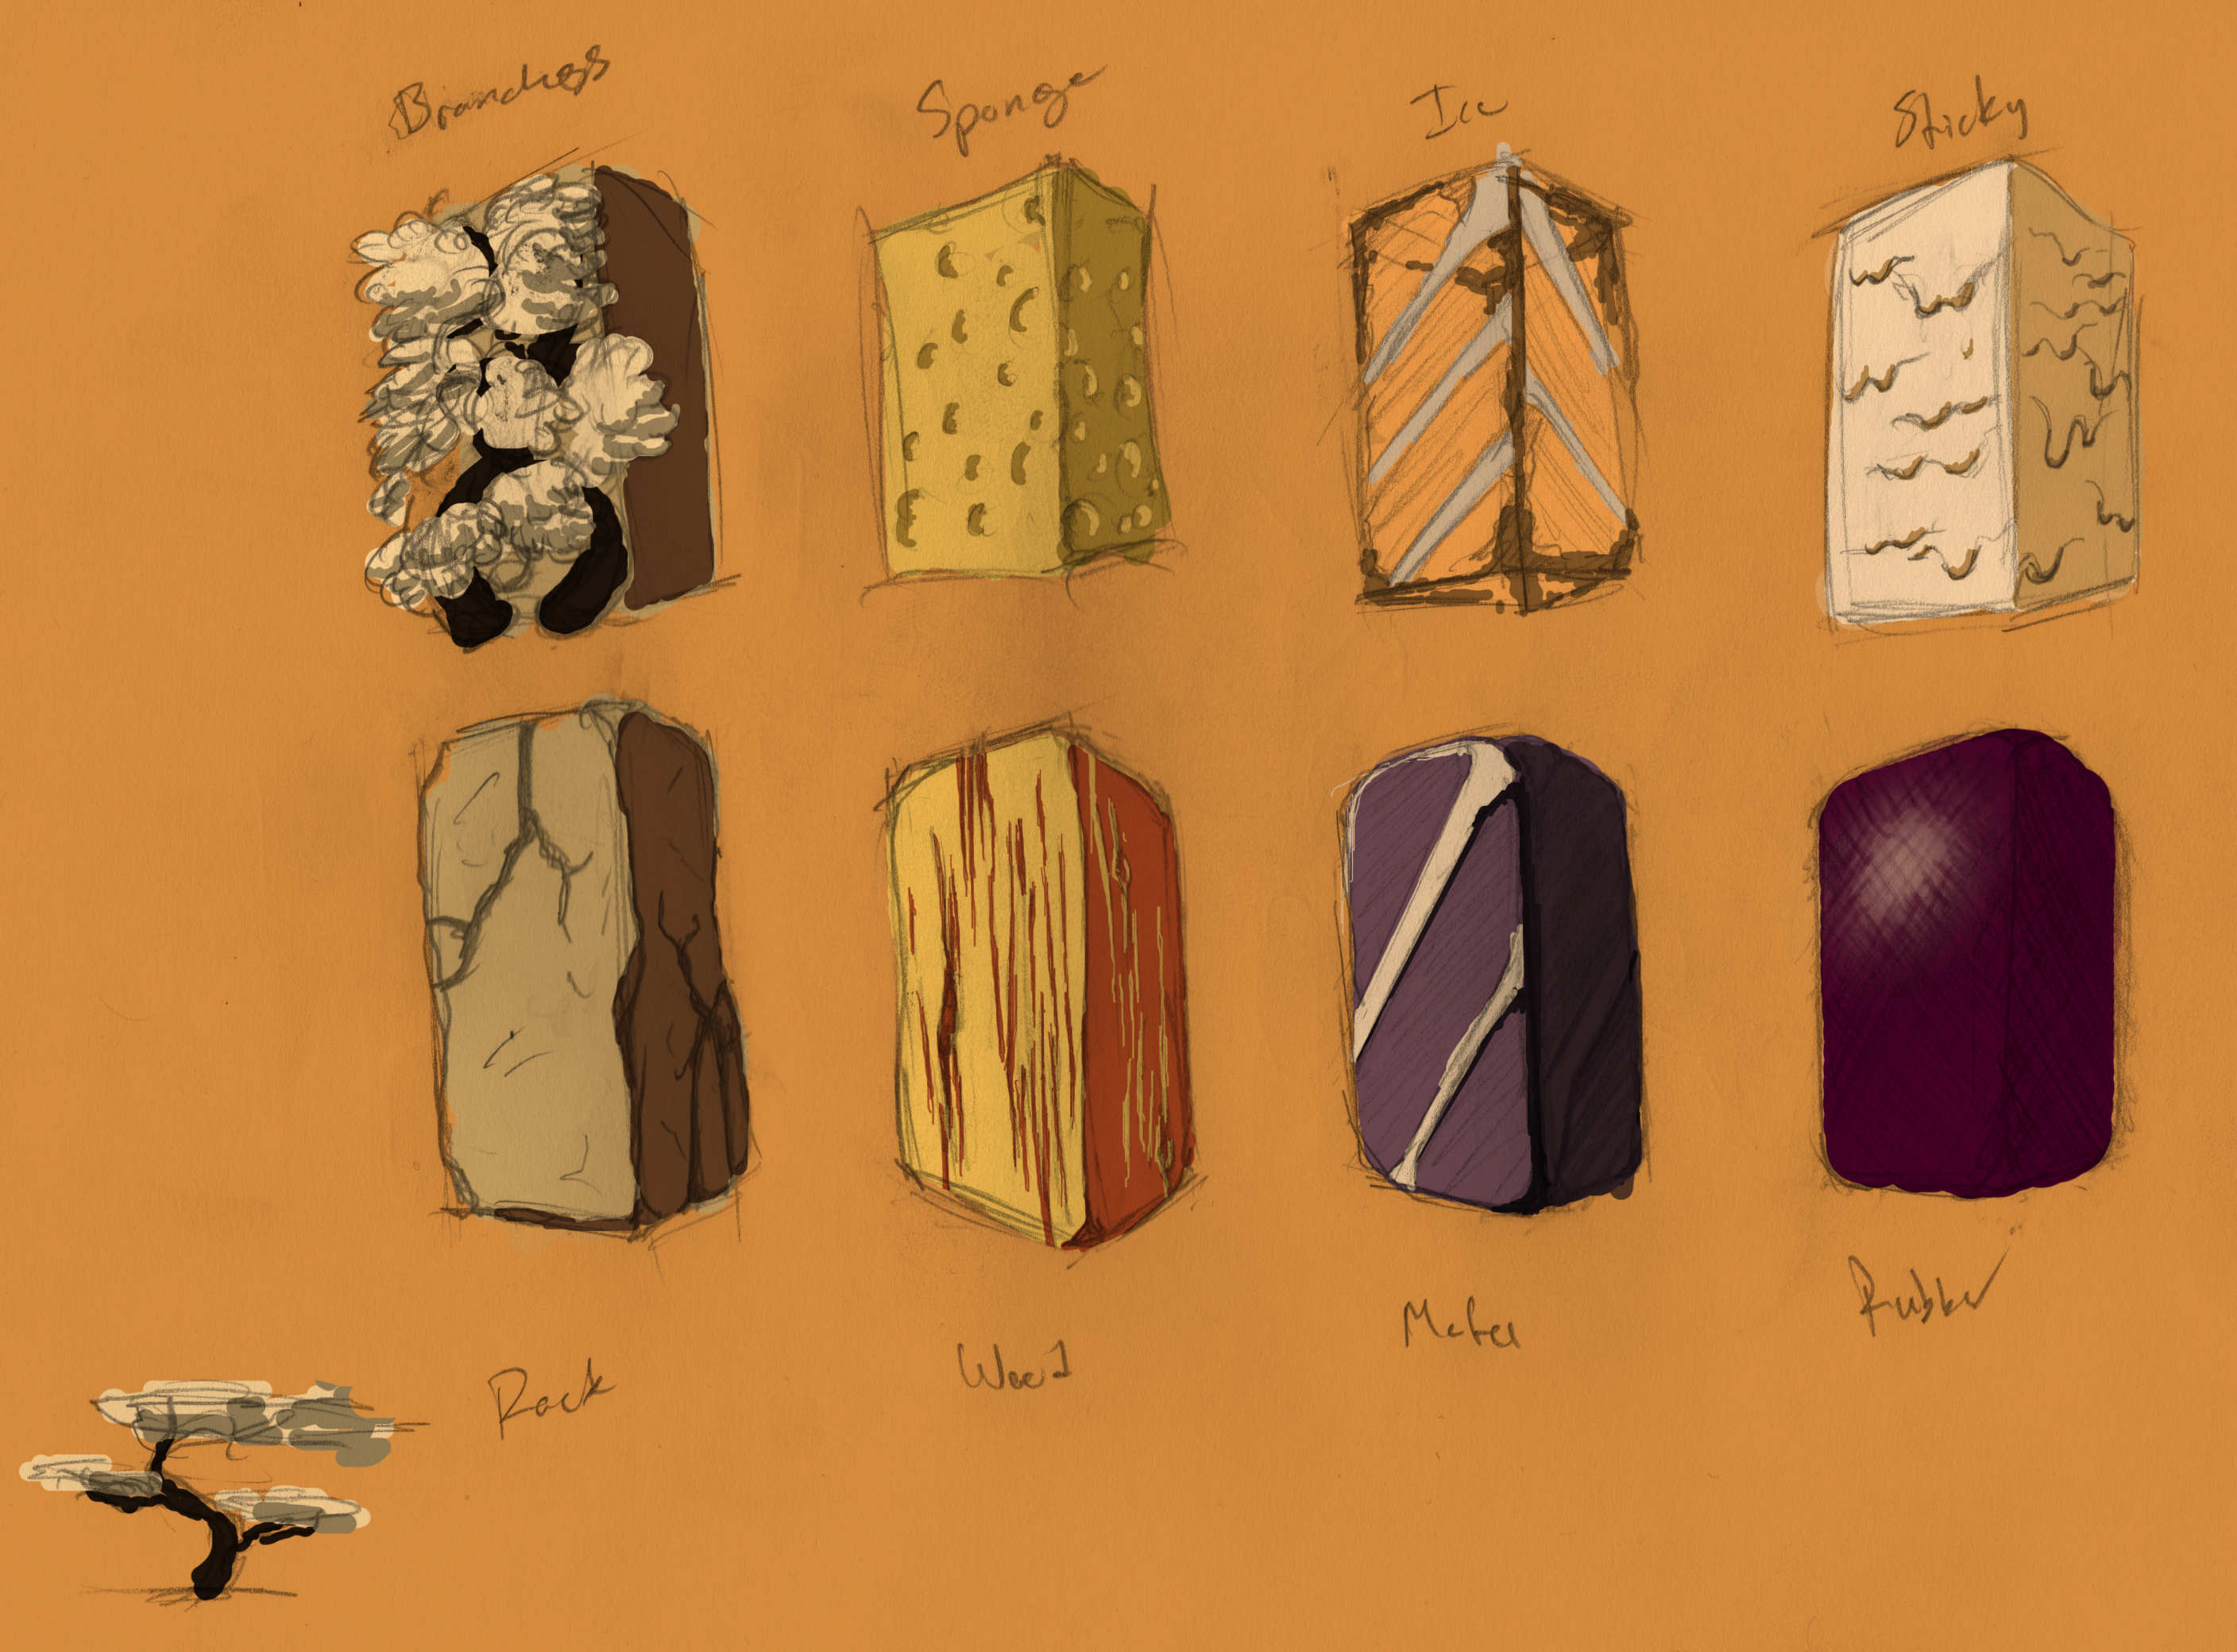 Branches
Sponge
Ice
Sticky
Rock
Wood
Metal
Rubber